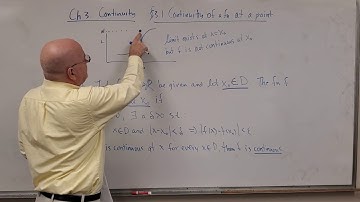 Ch 3 Continuity §3.1 Continuity of a fn at a point
limit exists at x=x₀
but f is not continuous at x₀
be given and let x₀∈D. The fn f
x₀ if
∃ a δ > 0 s.t.
x∈D and |x-x₀|<δ ⇒ |f(x)-f(x₀)|<ε
is continuous at x for every x∈D, then f is continuous